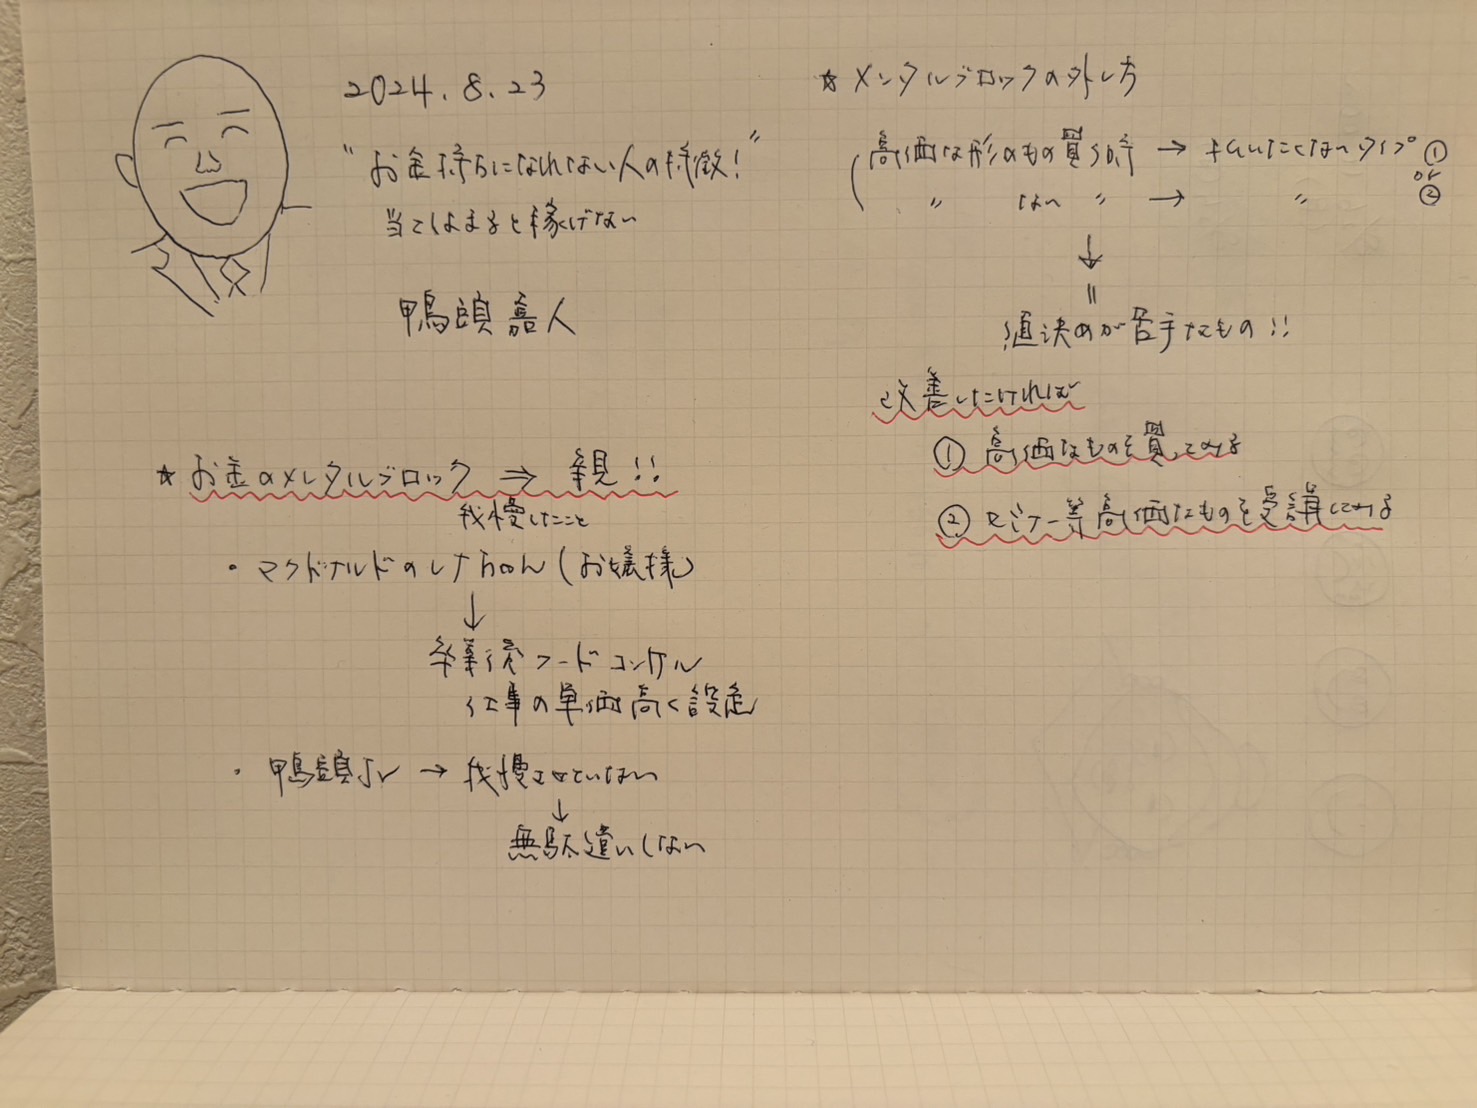 2024.8.23
"お金持ちになれない人の特徴!"
当てはまると稼げない
鴨頭嘉人
☆お金のメンタルブロック ⇒ 親!!
我慢したこと
・マクドナルドのしちゃん(お嬢様)
↓
卒業後フードコンサル
仕事の単価高く設定
・鴨頭Jr → 我慢させていない
↓
無駄遣いしない
☆メンタルブロックの外し方
高価な形のもの買う時 → 払いたくないタイプ ①
or
〃 ない 〃 → 〃 ②
↓
〃
値決めが苦手なもの!!
改善したければ
① 高価なものを買ってみる
② セミナー等高価なものを受講してみる